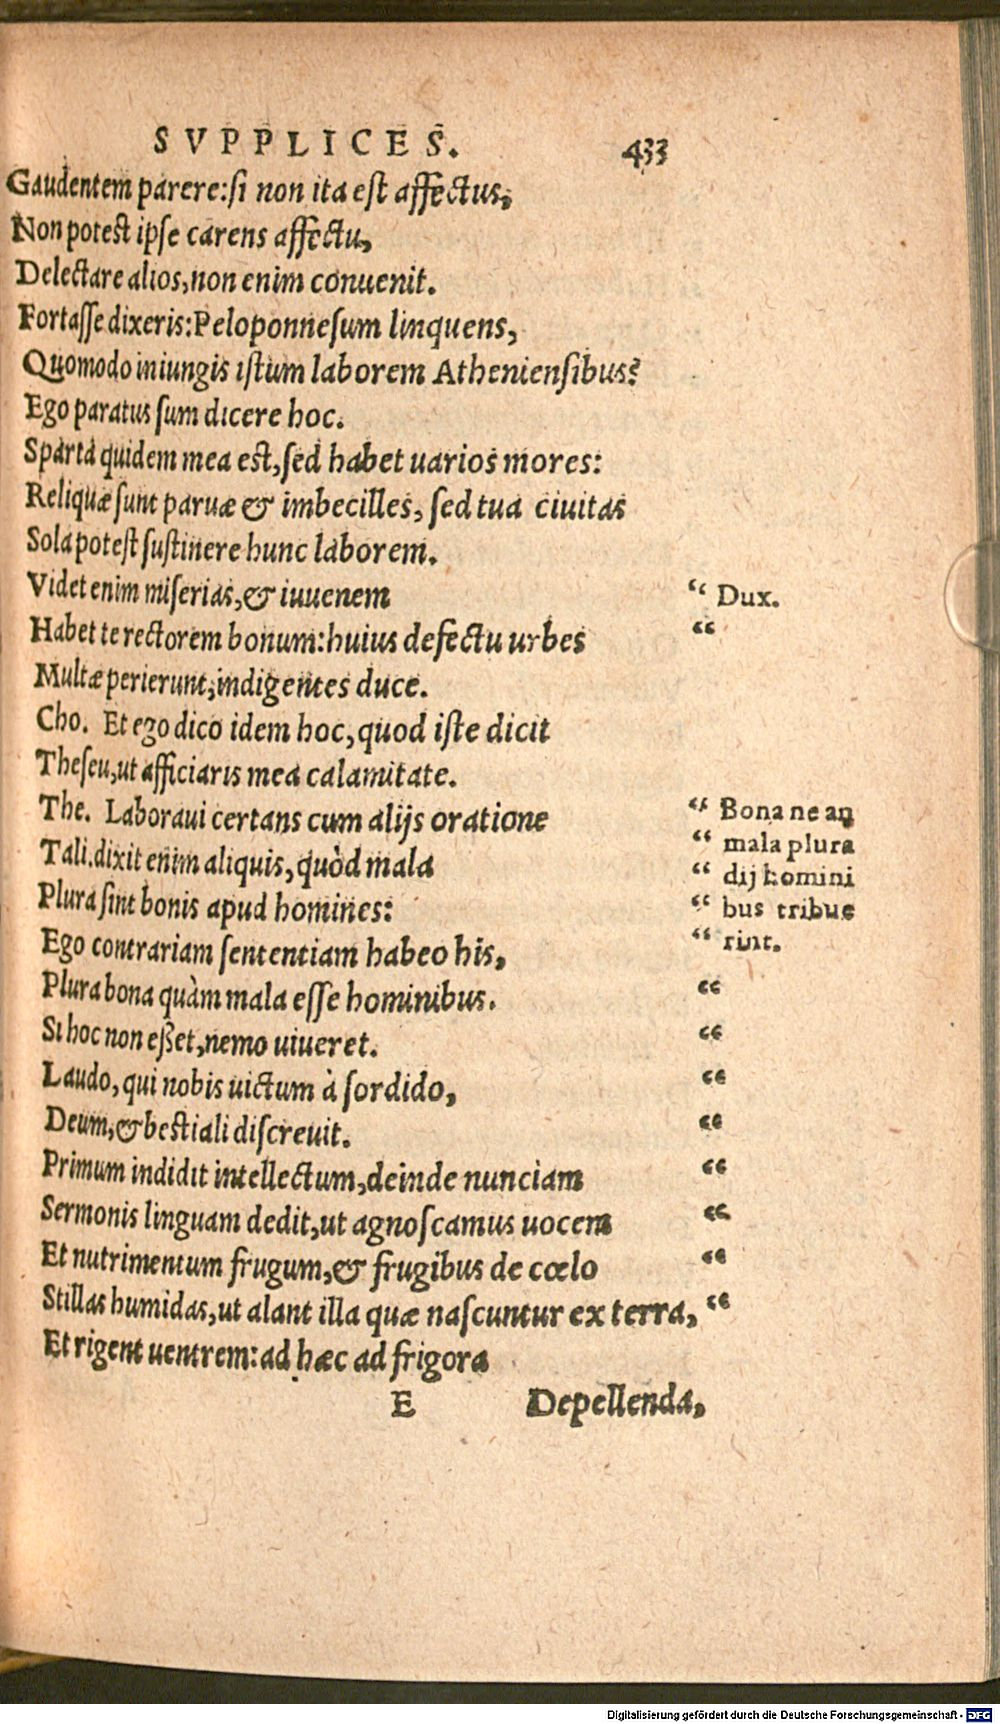 SVPPLICES. 433
Gaudentem parere:si non ita est affectus,
Non potest ipse carens affectu,
Delectare alios,non enim conuenit.
Fortasse dixeris:Peloponnesum linquens,
Quomodo iniungis istum laborem Atheniensibus?
Ego paratus sum dicere hoc.
Sparta quidem mea est,sed habet uarios mores:
Reliquæ sunt paruæ & imbecilles, sed tua ciuitas
Sola potest sustinere hunc laborem.
Videt enim miserias,& iuuenem “ Dux.
Habet te rectorem bonum:huius defectu urbes “
Multæ perierunt,indigentes duce.
Cho. Et ego dico idem hoc,quod iste dicit
Theseu,ut afficiaris mea calamitate.
The. Laboraui certans cum alijs oratione “ Bona ne an
Tali.dixit enim aliquis,quòd mala “ mala plura
Plura sint bonis apud homines: “ dij homini
“ bus tribue
Ego contrariam sententiam habeo his, “ rint.
Plura bona quàm mala esse hominibus. “
Si hoc non eßet,nemo uiueret. “
Laudo,qui nobis uictum à sordido, “
Deum,& bestiali discreuit. “
Primum indidit intellectum,deinde nunciam “
Sermonis linguam dedit,ut agnoscamus uocem “
Et nutrimentum frugum,& frugibus de cœlo “
Stillas humidas,ut alant illa quæ nascuntur ex terra, “
Et rigent uentrem:ad hæc ad frigora
E Depellenda,
Digitalisierung gefördert durch die Deutsche Forschungsgemeinschaft - DFG